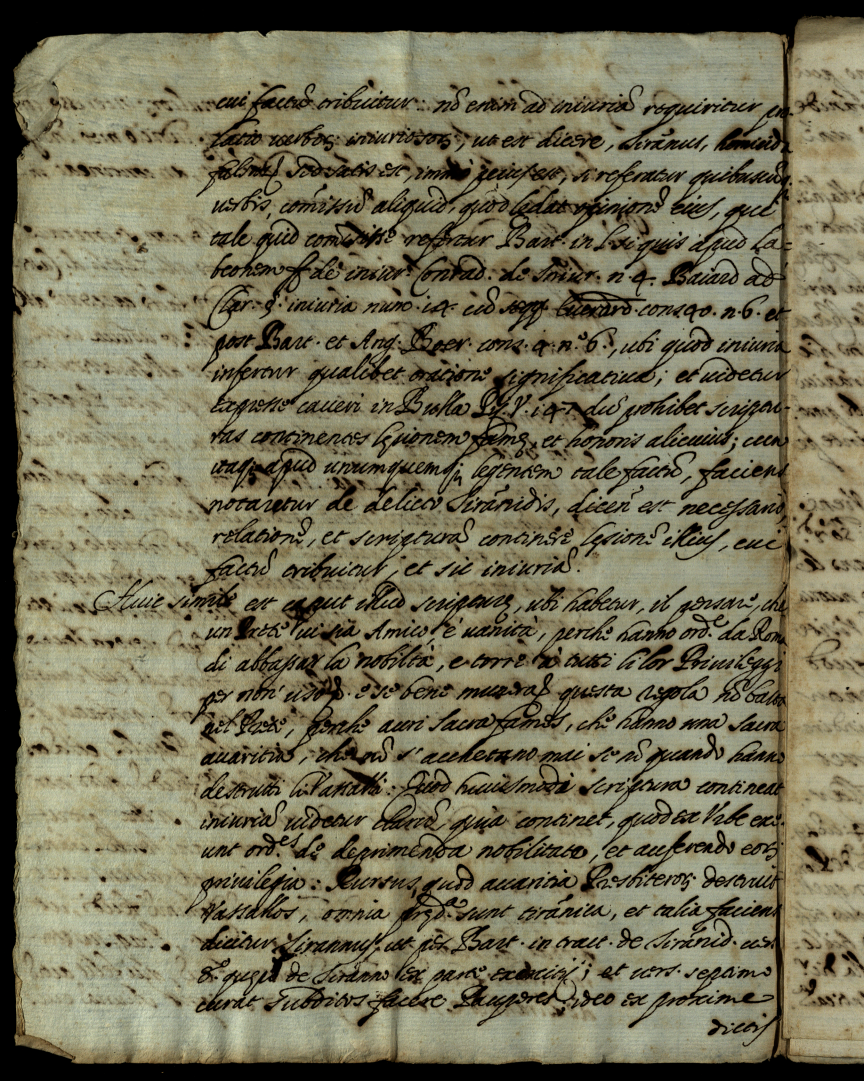 cui factũ tribuitur: nõ enim ad iniuriã requiritur pro-
latio verborꝝ iniuriosorꝝ, ut est dicere, Tirãnus, homicida
satis est, immo peius est, si referatur quibuscũq.
verbis, comissũ aliquid, quod ledat opinionẽ eius, qui
tale quid comisisse refertur Bart. in l. si quis apud La=
beonem ff. de iniur. Conrad. de Iniur. n. 4. Baiard. ad
Clar. §. iniuria num. 14. cũ seqq. cons. 40. n. 6. et
post Bart. et Ang. Boer. cons. 4. n.º 6., ubi quod iniuria
infertur qualibet oratione significativa; et videtur
expresse caveri in Bulla Pij V. 147. dũ prohibet scriptu-
ras continentes lesionem famę, et honoris alicuius; cum
itaq. apud unumquemq. legentem tale factũ, faciens
notaretur de delicto Tirãnidis, dicen. est necessario
relationẽ, et scripturã continere lesionẽ illius, cui
factũ tribuitur, et sic iniuriã.
Huic simile est caput illud scripturę, ubi habetur, il pensare, che
un Prete vi sia Amico è vanità, perche hanno ord.e da Roma
di abbassar la nobiltà, e torre à tutti li lor Privileggi
per non e se bene muterà questa regola nõ falla
nel Prete, perche auri sacra fames, che hanno una sacra
avaritia, che nõ s'acchetano mai se nõ quando hanno
destrutti li Vassalli: Quod huiusmodi scriptura contineat
iniuriã videtur clarũ, quia continet, quod ex Urbe exe-
unt ord.es de deprimenda nobilitate, et auferendo eorꝝ
privilegia: Rursus, quod avaritia Presbiterorꝝ destruit
Vassallos, omnia prẹd.a sunt tirãnica, et talia faciens
dicitur Tirannus, ut per Bart. in tract. de Tirãnid. vers.
8.º quęro de Tiranno ex parte exercitij; et vers. septimo
curat subditos facere Pauperes, ideo ex proxime
dictis